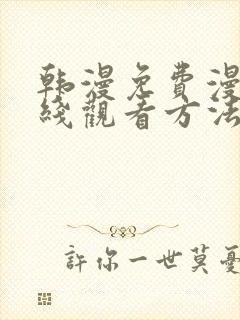 韩漫免費漫
綫觀看方法
許你一世莫憂